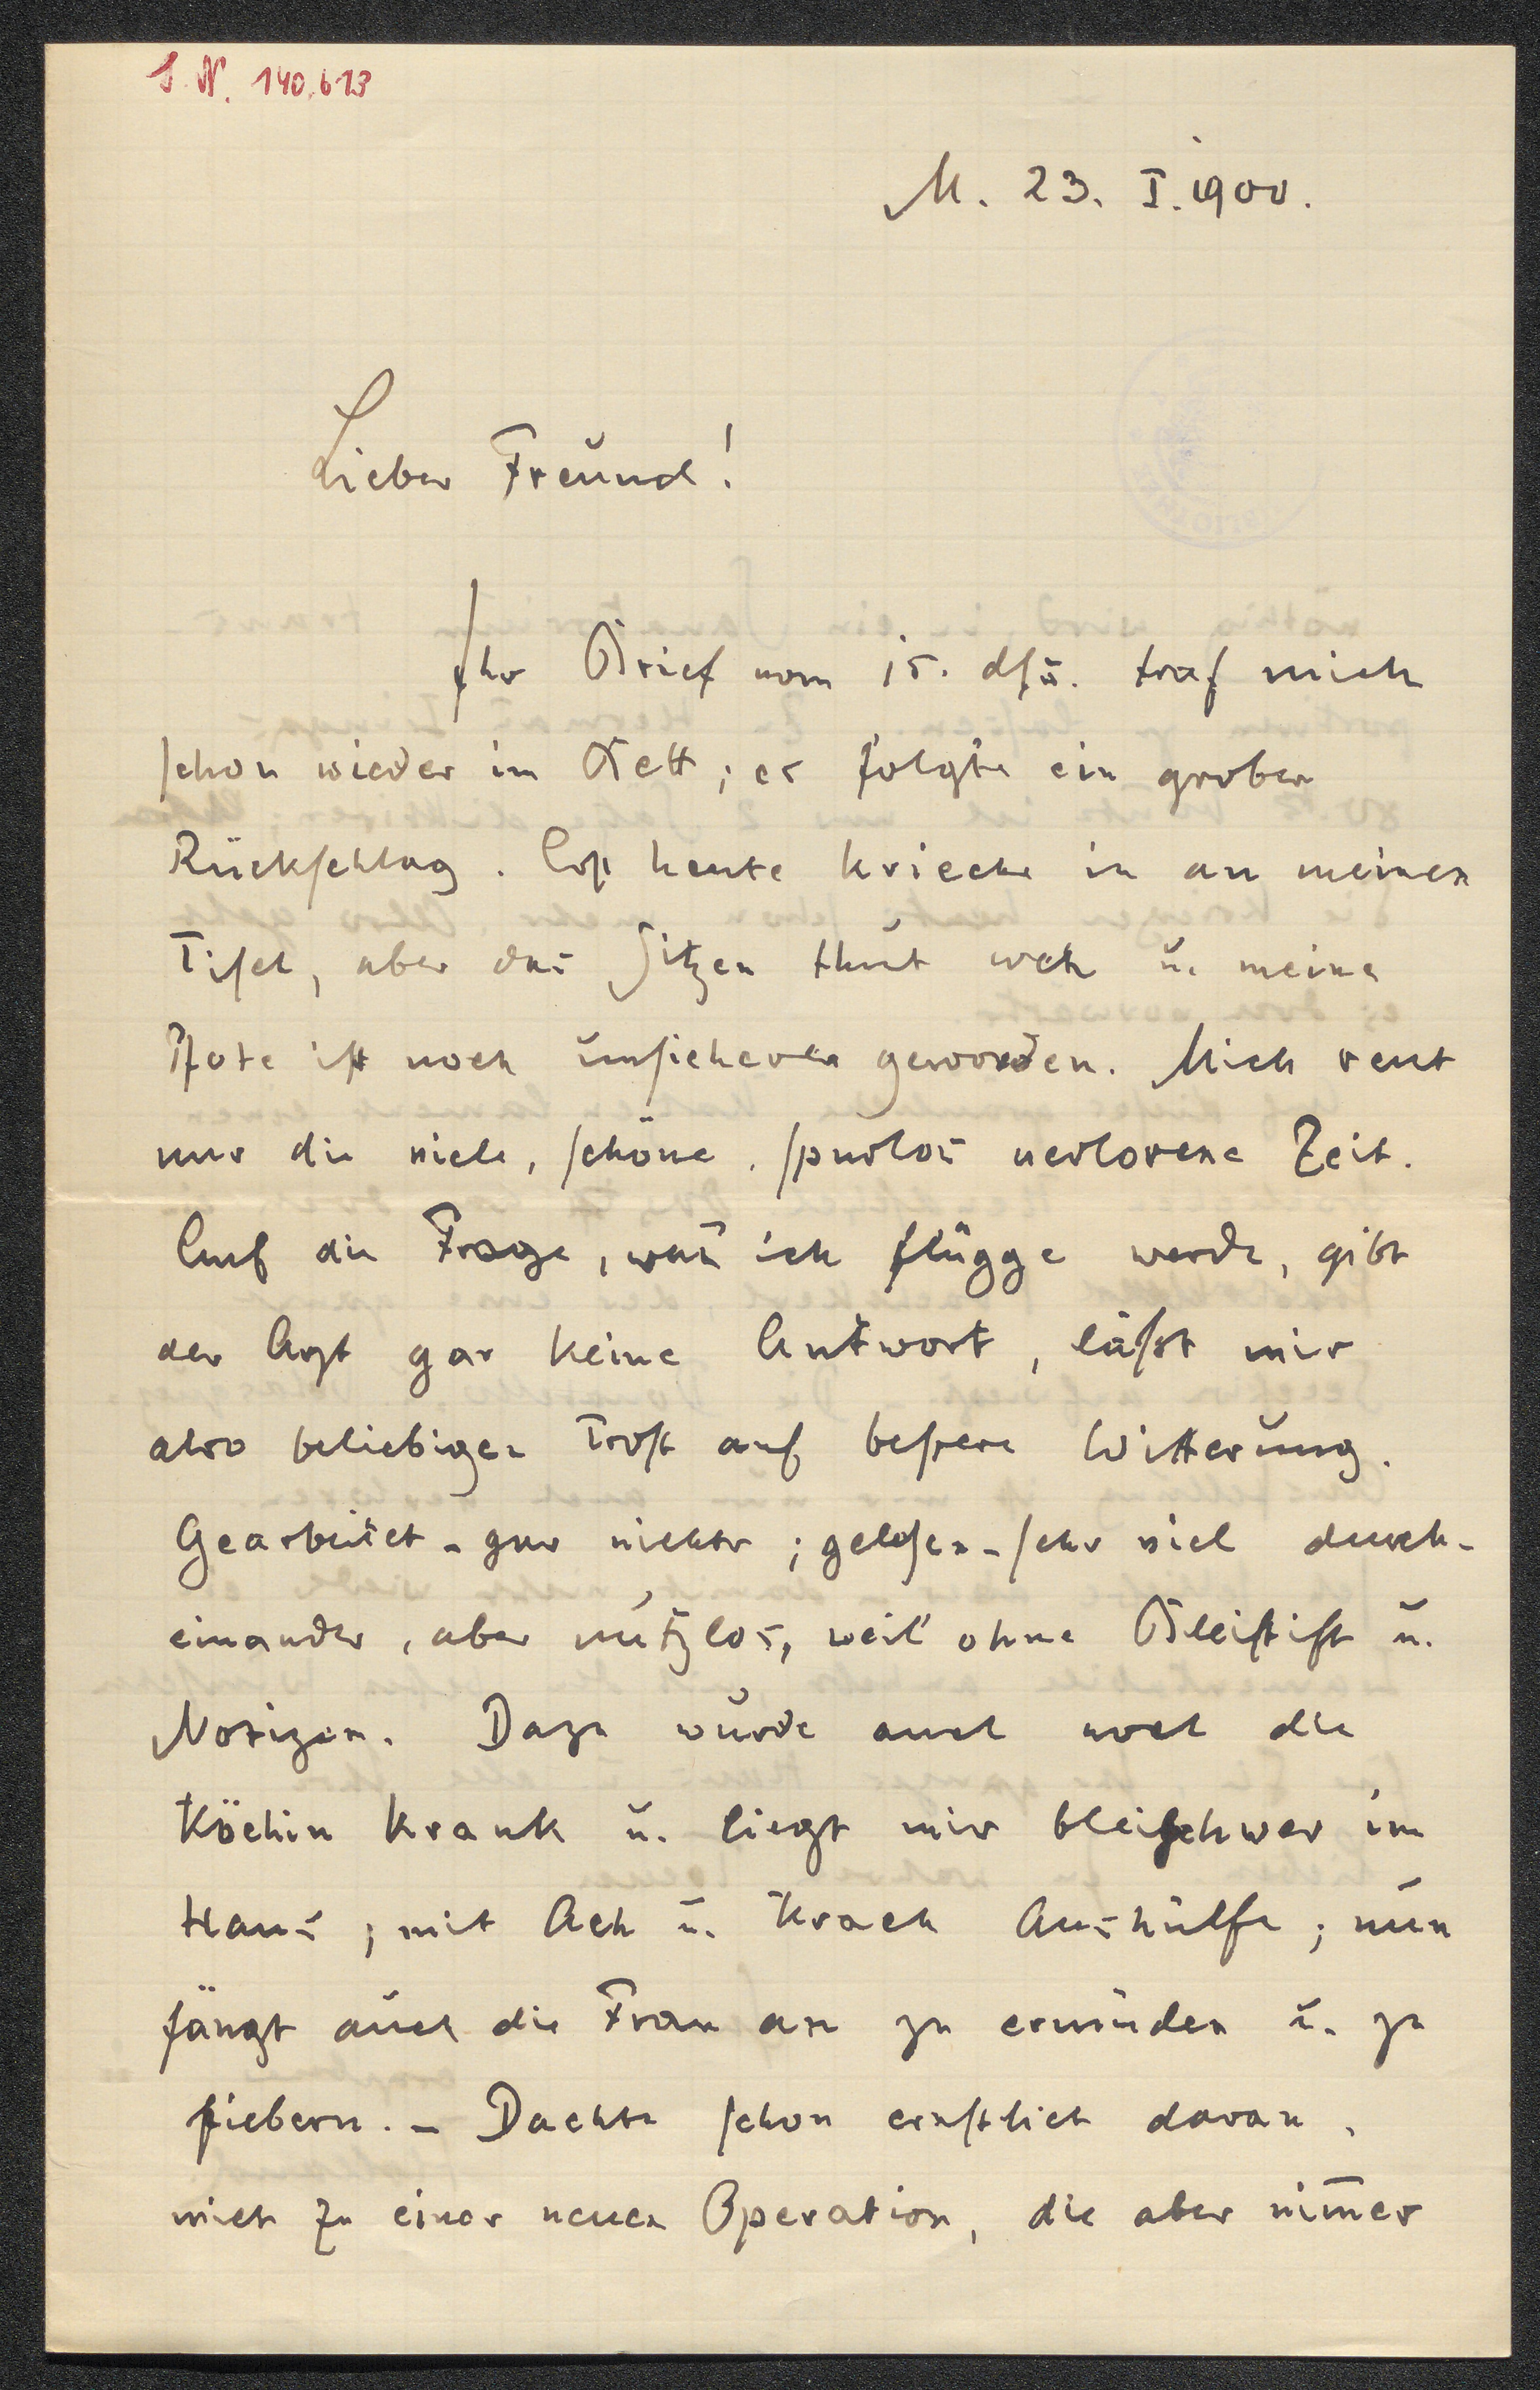 I. N. 140.613
M. 23. I. 1900.
Lieber Freund!
Ihr Brief vom 15. dſs. traf mich
ſchon wieder im Bett; es folgte ein grober
Rückſchlag. Erſt heute krieche ich an meinen
Tiſch, aber das Sitzen thut weh u. meine
Pfote iſt noch unſicherer geworden. Mich reut
nur die viele, ſchöne, ſpurlos verlorene Zeit.
Auf die Frage, wañ ich flügge werde, gibt
der Arzt gar keine Antwort, läſst mir
also beliebigen Troſt auf beſsere Witterung.
Gearbeitet - gar nichts; geleſen - ſehr viel durch-
einander, aber nutzlos, weil ohne Bleiſtift u.
Notizen. Dazu wurde auch noch die
Köchin krank u. liegt mir bleiſchwer im
Haus; mit Ach u. Krach Aushülfe; nun
fängt auch die Frau an zu ermüden u. zu
fiebern. - Dachte ſchon ernſtlich daran,
mich zu einer neuen Operation, die aber nim̄er